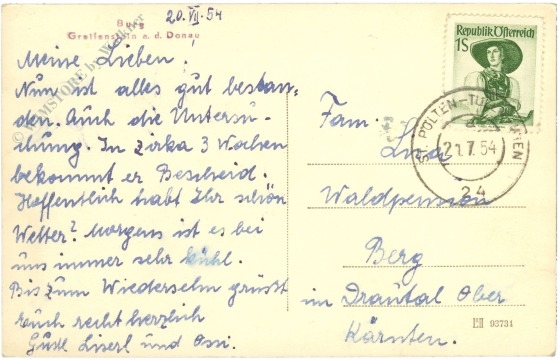 20.VII.54
Burg
Greifenstein a. d. Donau
Meine Lieben!
Nun ist alles gut bestan-
den. Auch die Untersu-
chung. In zirka 3 Wochen
bekommt er Bescheid.
Hoffentlich habt Ihr schön
Wetter? Morgens ist es bei
uns immer sehr kühl.
Bis zum Wiedersehn grüsst
Euch recht herzlich
Gustl Liserl und Ossi.
Republik Österreich
1S
ST. PÖLTEN-
21.7.54
24
Fam.
Waldpension
Berg
im Drautal Ober
Kärnten.
93734